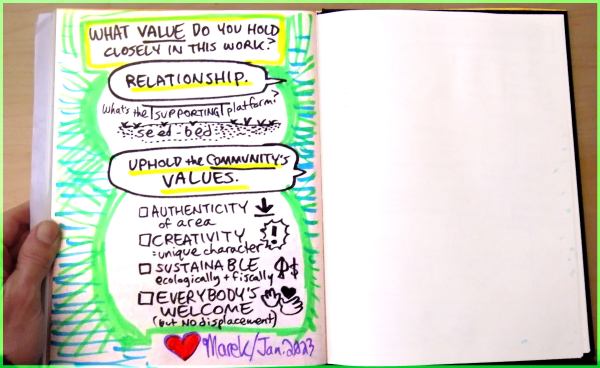 WHAT VALUE DO YOU HOLD
CLOSELY IN THIS WORK?
RELATIONSHIP.
What's the SUPPORTING platform?
seed-bed
UPHOLD the COMMUNITY'S
VALUES.
AUTHENTICITY
of area
CREATIVITY
= unique character
SUSTAINABLE
ecologically + fiscally
EVERYBODY'S
WELCOME
(but NO displacement)
Marek/Jan.2023